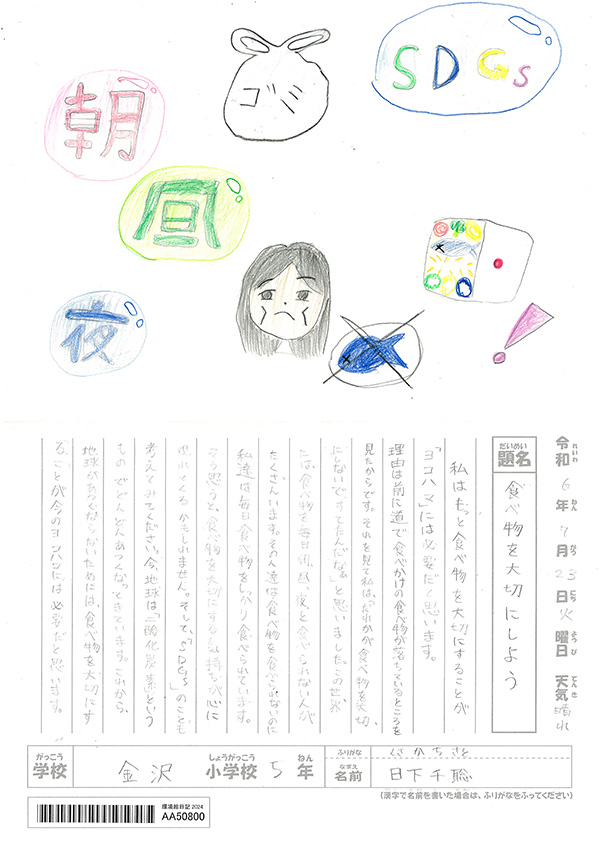 SDGs
ゴミ
朝
昼
夜
！
令和6年7月23日火曜日 天気 晴れ
れいわ ねん がつ にち ようび てんき
だいめい
題名
食べ物を大切にしよう
私はもっと食べ物を大切にすることが
「ヨコハマ」には必要だと思います。
理由は前に道で食べかけの食べ物が落ちているところを
見たからです。それを見て私は、「だれかが食べ物を大切
にないですてたんだなぁ」と思いました。この世界
には食べ物を毎日朝、昼、夜、と食べられない人が
たくさんいます。その人達は食べ物を食べられないのに
私達は毎日食べ物をしっかり食べられています。
そう思うと、食べ物を大切にする気持ちが心に
出てくるかもしれません。そして、「SDGs」のことも
考えてみてください。今、地球は二酸化炭素という
ものでどんどんあつくなってきています。これから、
地球があつくならないためには、食べ物を大切にす
ることが今のヨコハマには必要だと思います。
がっこう しょうがっこう ねん
学校 金沢 小学校 5年
ふりがな くさかちさと
なまえ
名前 日下千聡
(漢字で名前を書いた場合は、ふりがなをふってください)
環境絵日記 2024
AA50800